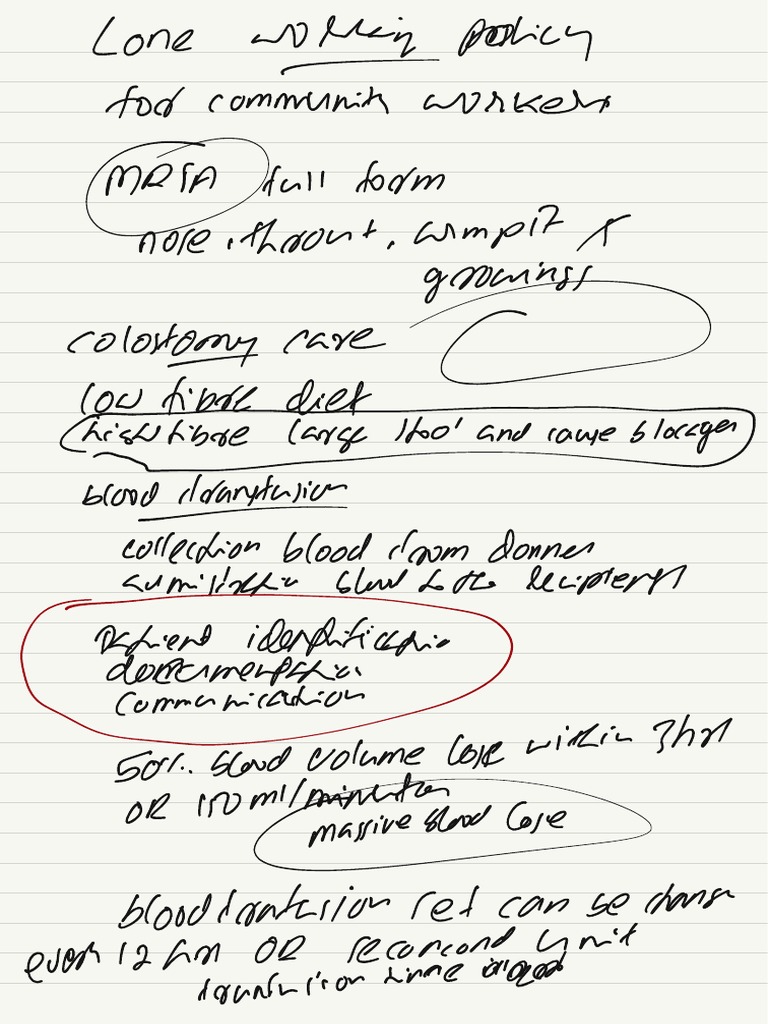 Lone working policy
for community workers
MRSA full form
nose, throat, armpit &
groinings
colostomy care
low fibre diet
high fibre large stool and cause blockages
blood transfusion
collection blood from donner
blood to the recipient
Patient identification
documentation
communication
50% blood volume lose within 3hrs
OR 150 ml/
massive blood lose
blood transfusion set can be change
every 12 hrs OR second unit
transfusion time